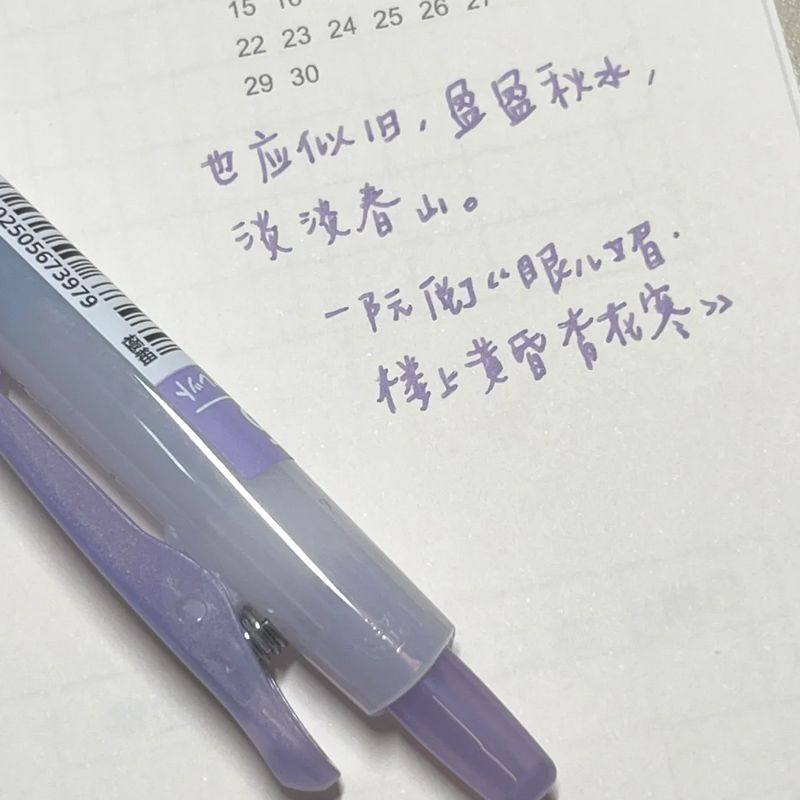 15 16
22 23 24 25 26 27
29 30
也应似旧，盈盈秋水，
淡淡春山。
—阮阅《眼儿媚·
楼上黄昏杏花寒》
02505673979
極細